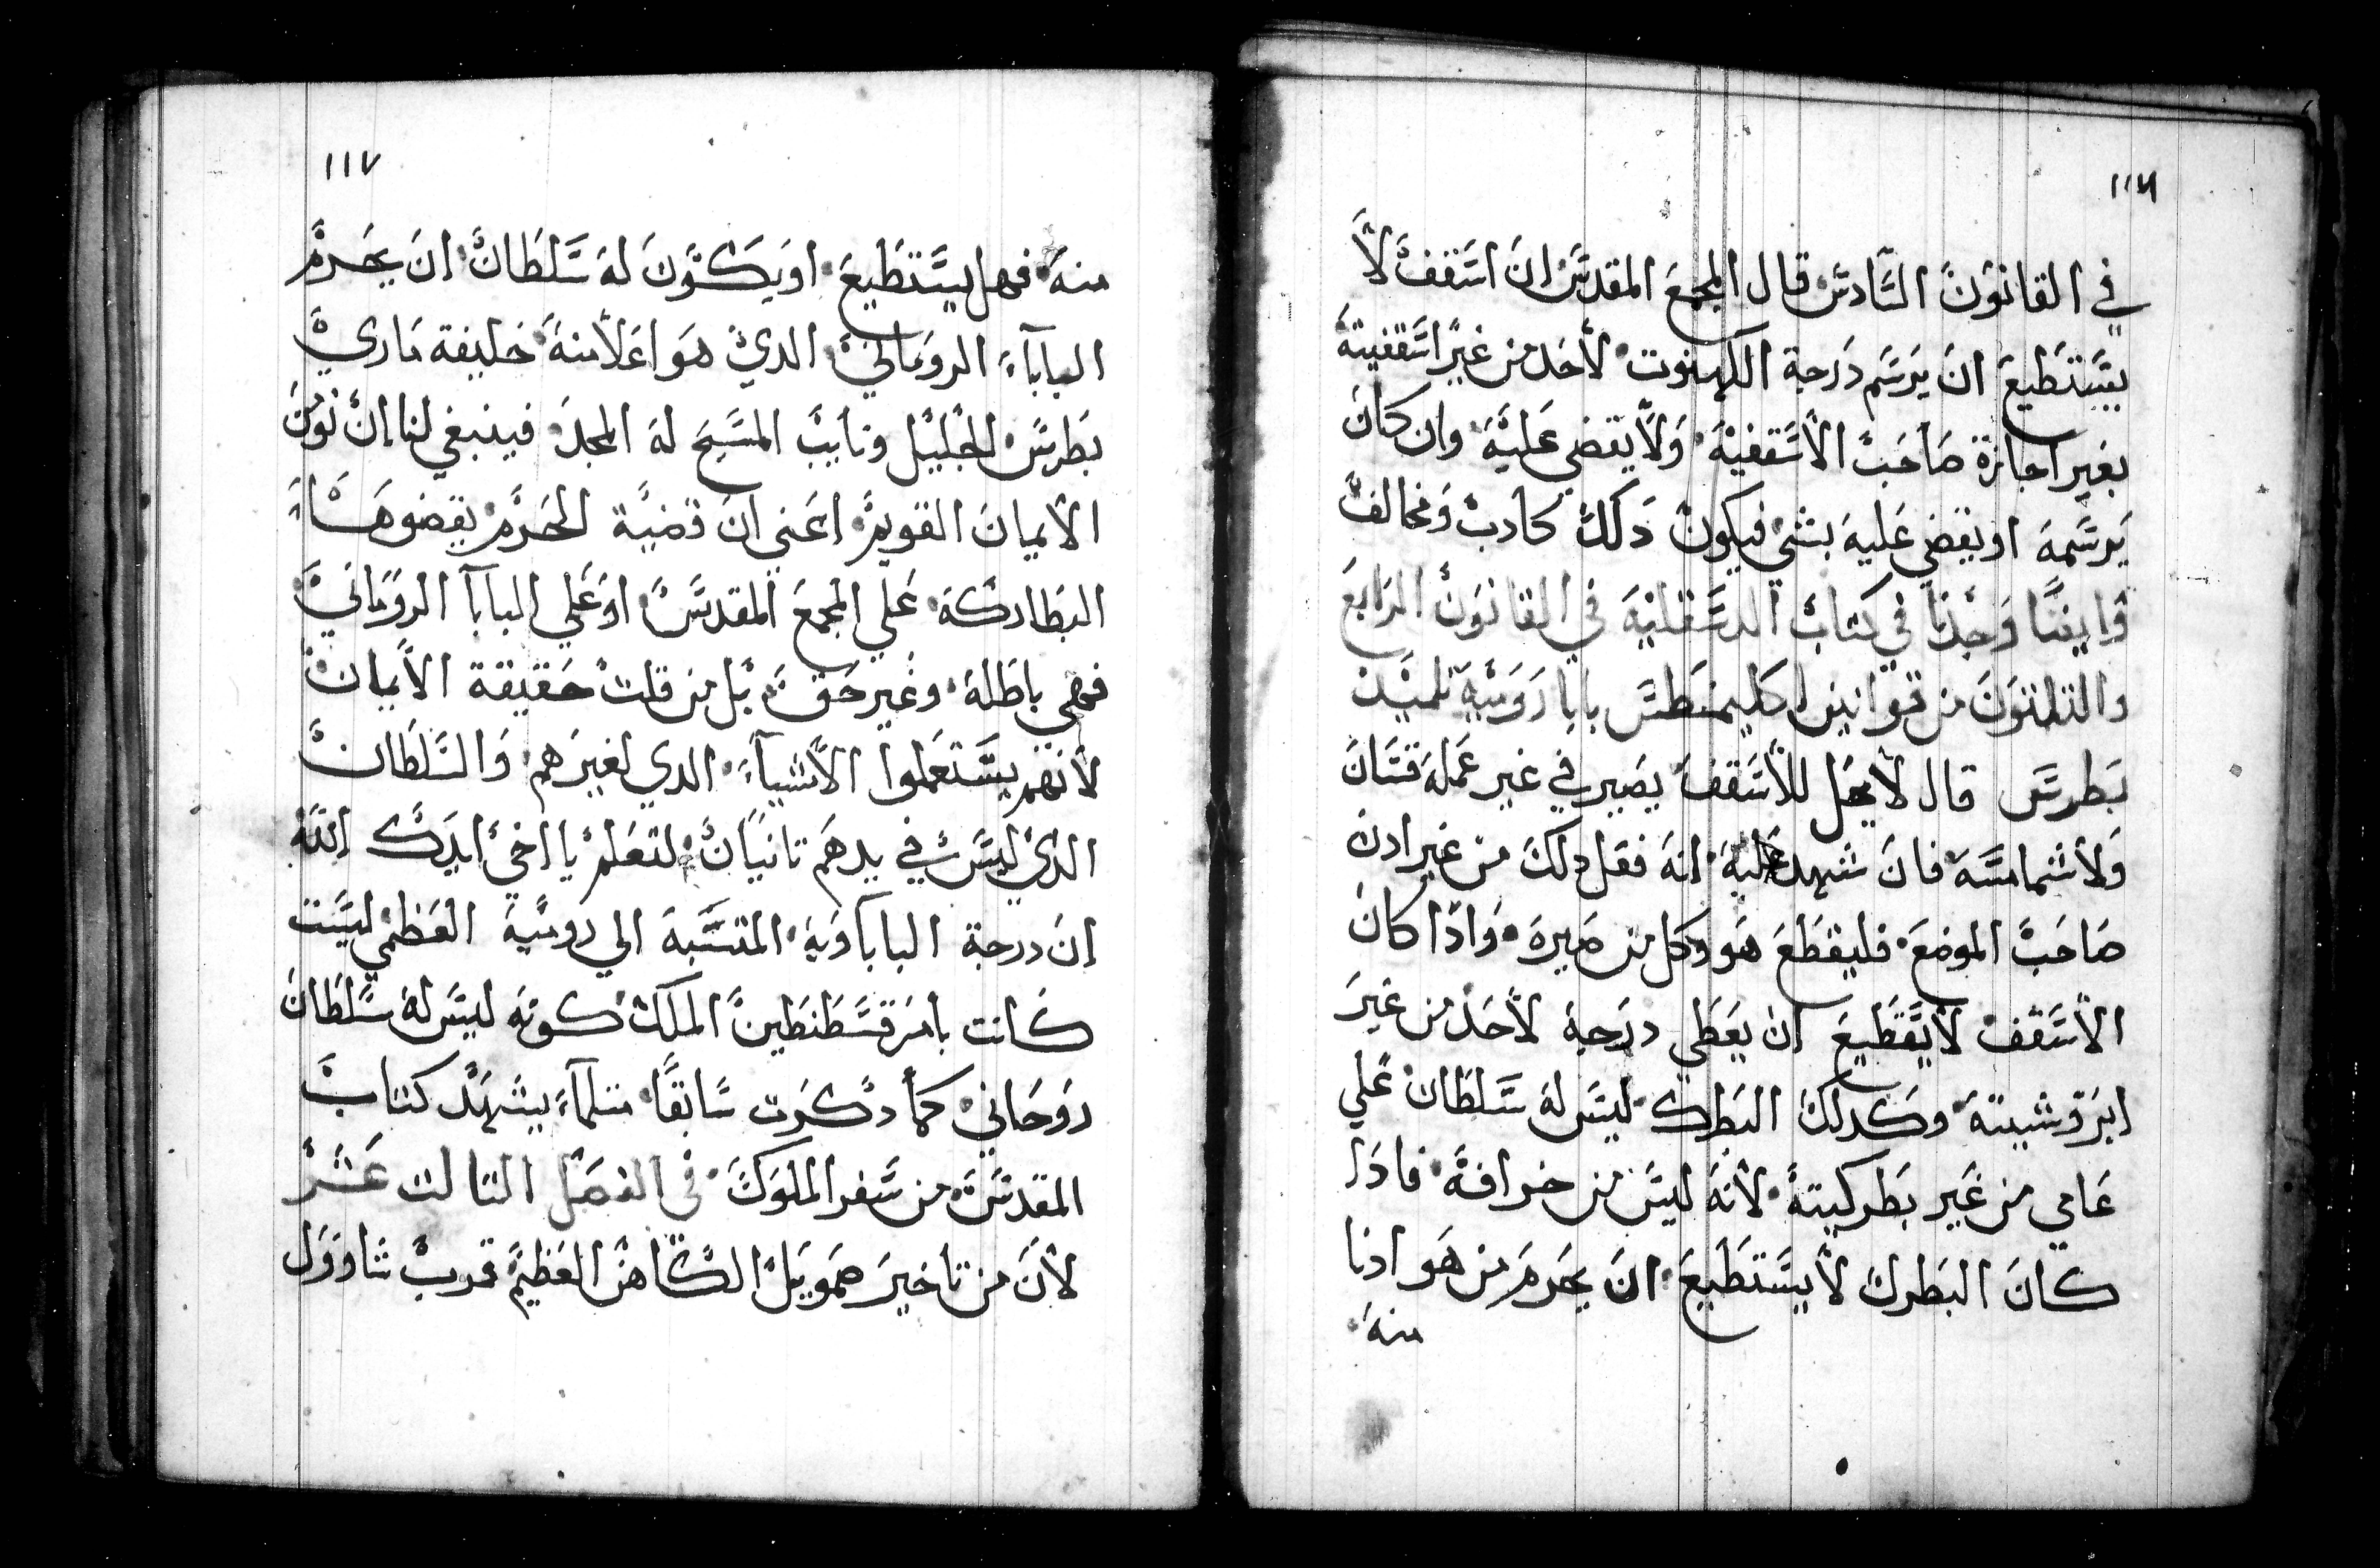 ١١٦
في القانون السادس قال المجمع المقدس ان اسقف لا
يستطيع ان يرسم درجة الكهنوت لاحد من غير اسقفيته
بغير اجازة صاحب الاسقفية ولا يقضي عليه وان كان
يرسمه او يقضي عليه بشي فيكون دلك كادب ومخالف
وايضا وجدنا في كتاب الدسقلية في القانون الرابع
والتلتون من قوانين اكليمنطس بابا رومية تلميد
بطرس قال لا يحل للاسقف يصير في غير عمله قسان
ولا شمامسة فان شهد عليه انه فعل دلك من غير ادن
صاحب الموضع فليقطع هو وكل من صيره وادا كان
الاسقف لا يقطيع ان يعطي درجة لاحد من غير
ابروشيته وكدلك البطرك ليس له سلطان علي
عامي من غير بطركيته لانه ليس من خرافة فادا
كان البطرك لا يستطيع ان يحرم من هو ادنا
منه
١١٧
منه فهل يستطيع او يكون له سلطان ان يحرم
البابا الروماني الدي هو اعلا منه خليفة ماري
بطرس الجليل ونايب المسيح له المجد فينبغي لنا ان نومن
الايمان القويم اعني ان قضية الحرم يقضوها
البطاركة علي المجمع المقدس او علي البابا الروماني
فهي باطلة وغير حق بل من قلت حقيقة الايمان
لانهم يستعملوا الاشياء الدي لغيرهم والسلطان
الدي ليس في يدهم تانيا لتعلم يا اخي ايدك الله
ان درجة الباباوية المتسبة الي رومية العظمي ليست
كانت بامر قسطنطين الملك كونه ليس له سلطان
روحاني كما دكرت سابقا متلما يشهد كتاب
المقدس من سفر الملوك في الفصل التالت عشر
لان من تاخير صمويل الكاهن العظيم قرب شاوول